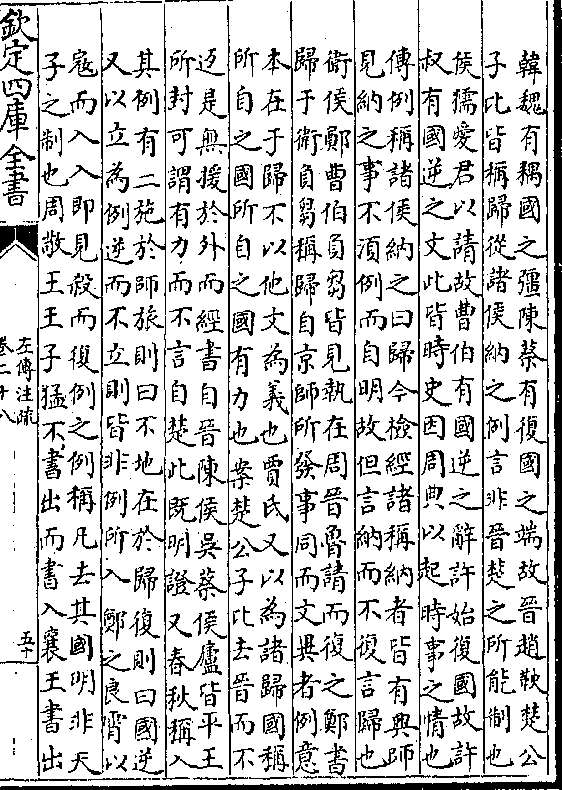 韓魏有耦國之彊陳蔡有復國之端故晉趙鞅楚公
子比皆稱歸從諸侯納之例言非晉楚之所能制也
侯獳愛君以請故曹伯有國逆之辭許始復國故許
叔有國逆之文此皆時史因周典以起時事之情也
傳例稱諸侯納之曰歸今檢經諸稱納者皆有興師
見納之事不須例而自明故但言納而不復言歸也
衛侯鄭曹伯負芻皆見執在周晉魯請而復之鄭書
歸于衛負芻稱歸自京師所發事同而文異者例意
本在于歸不以他文為義也賈氏又以為諸歸國稱
所自之國所自之國有力也案楚公子比去晉而不
迓是無援於外而經書自晉陳侯吳蔡侯廬皆平王
所封可謂有力而不言自楚此既明證又春秋稱入
其例有二施於師旅則曰不地在於歸復則曰國逆
又以立為例逆而不立則皆非例所入鄭之良霄以
寇而入入即見殺而復例之例稱凡去其國明非天
子之制也周敬王王子猛不書出而書入襄王書出
欽定四庫全書
左傳注疏
卷二十八
五十